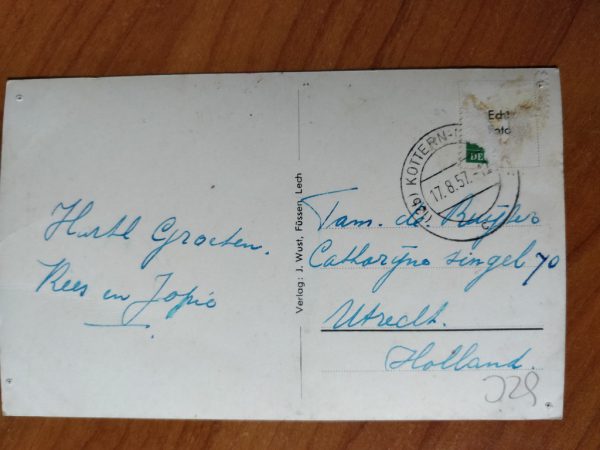 Hartl Groeten.
Kees en Jopie
Verlag: J. Wust, Füssen, Lech
Echt
Foto
DE
(13b) KOTTERN-
17.8.57.-12
c
Fam. de Ruijter
Catharÿne singel 70
Utrecht.
Holland.